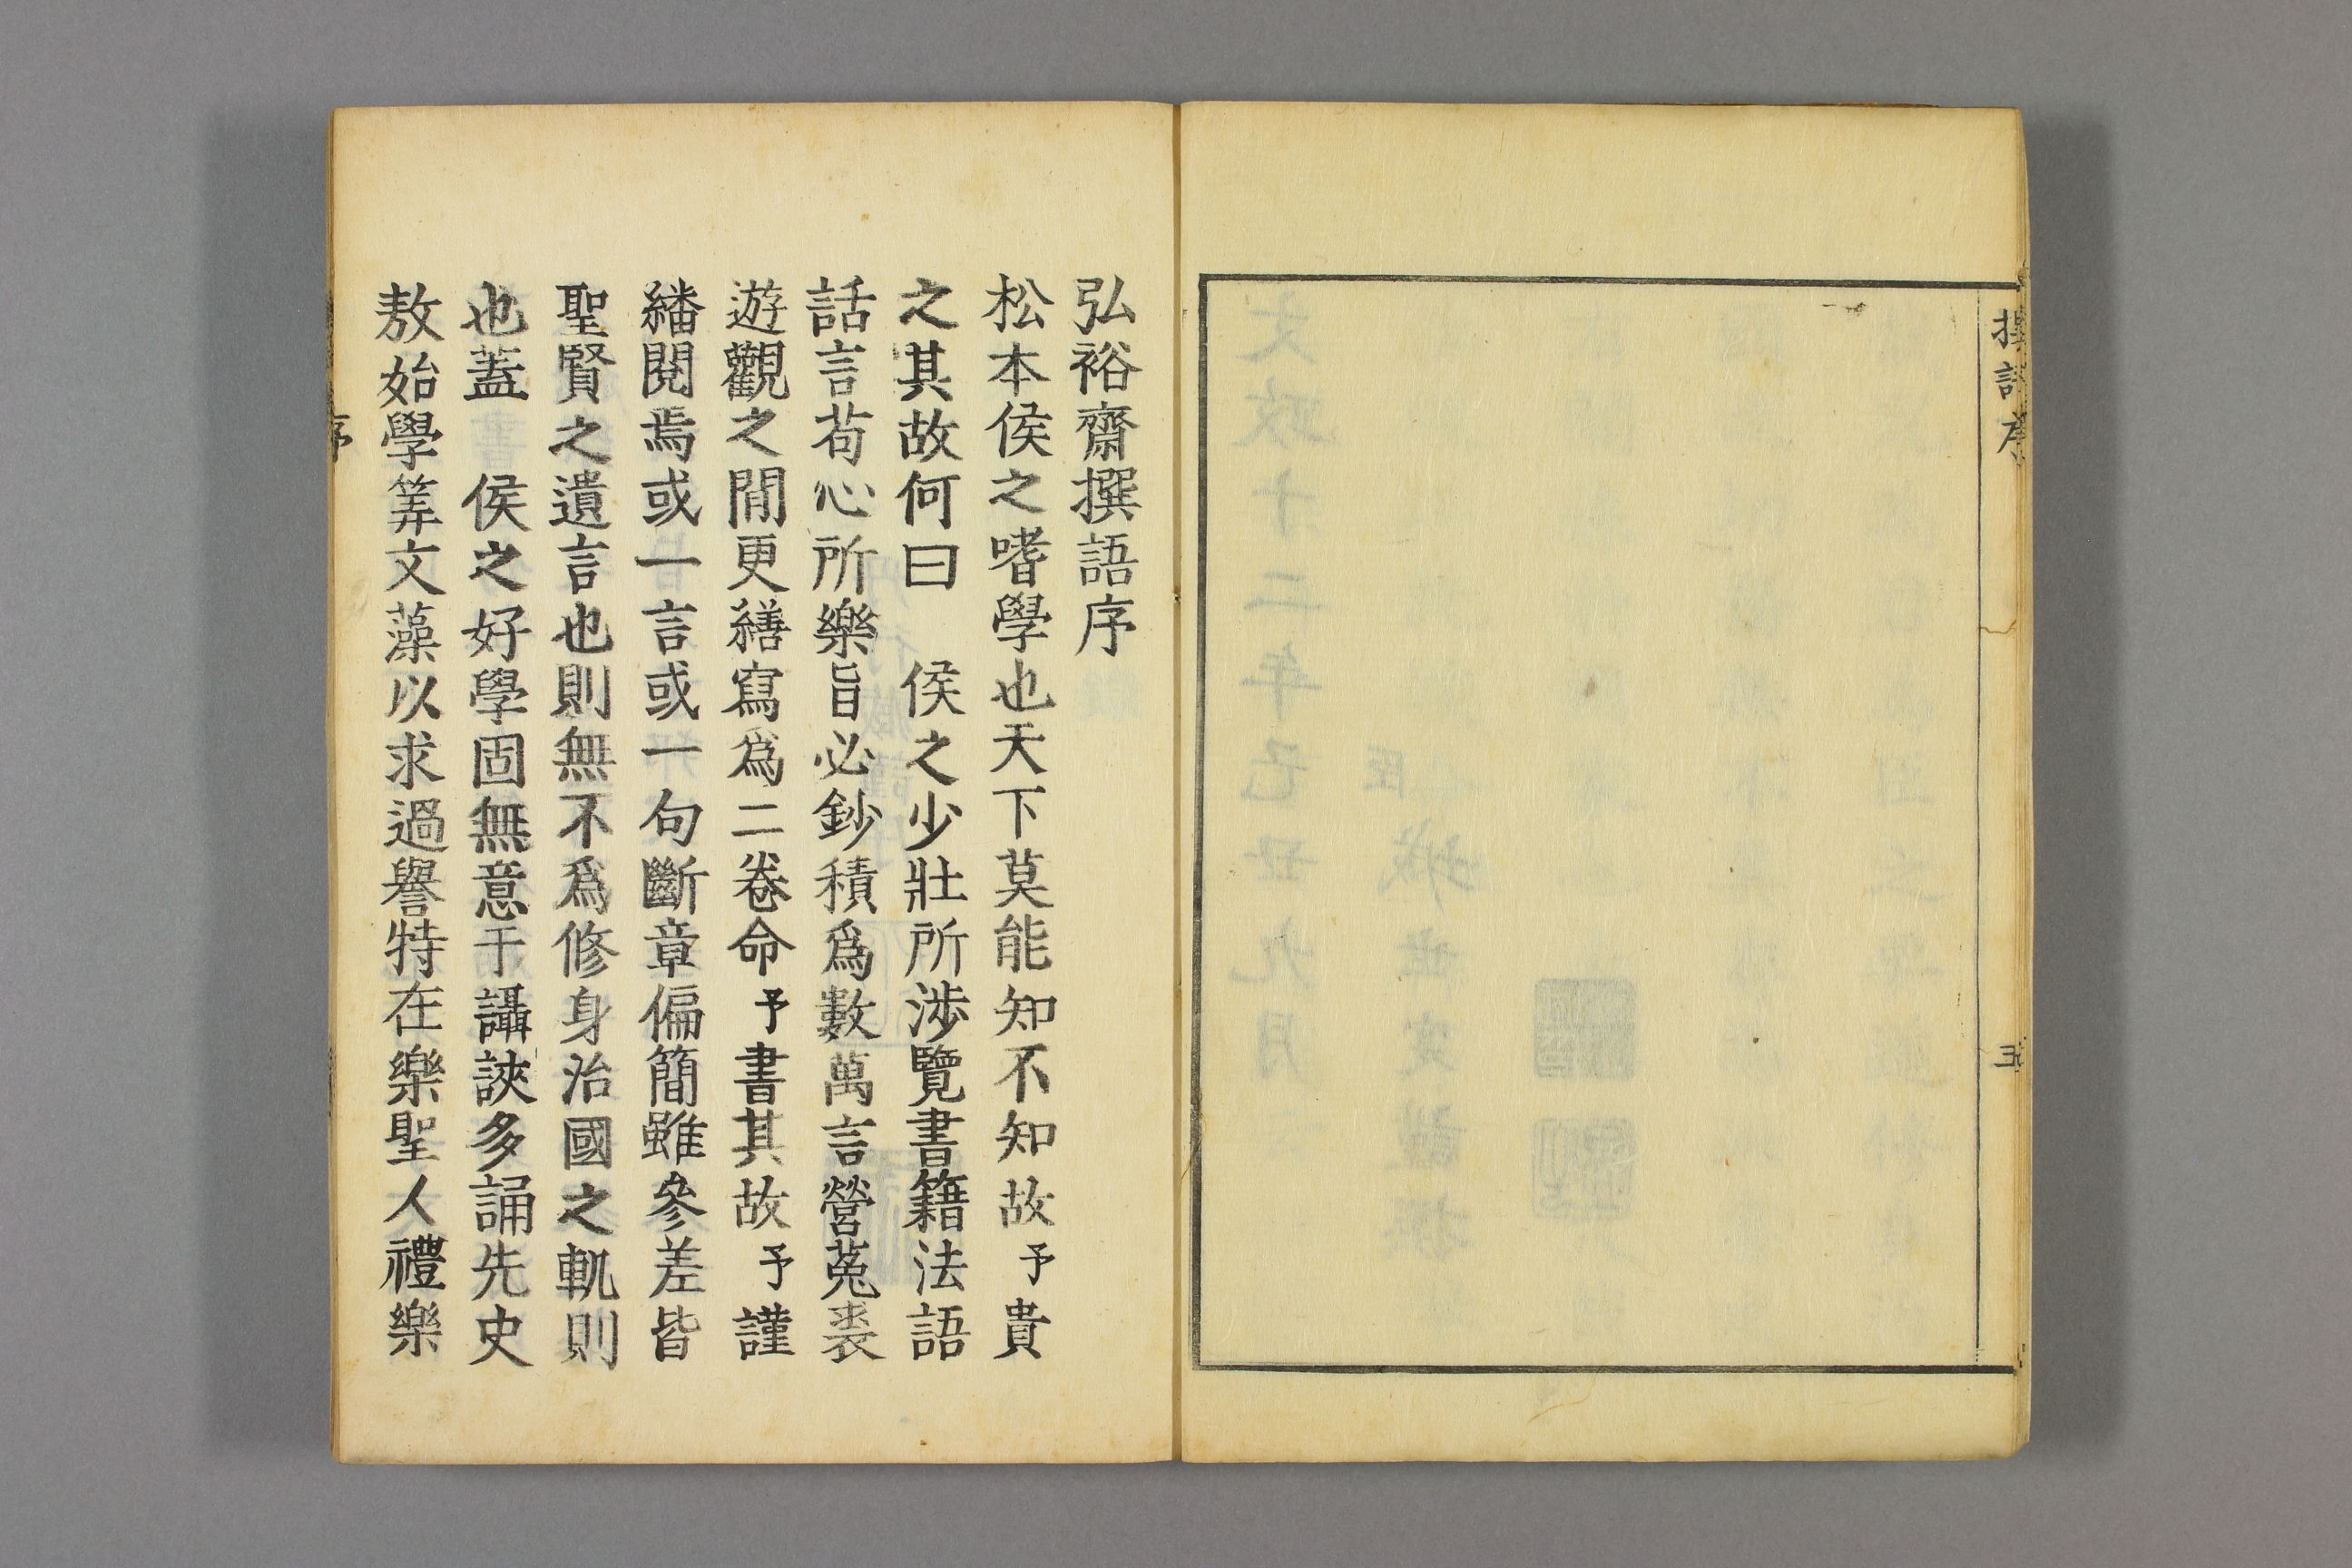 撰語序
弘裕齋撰語序
松本侯之嗜學也天下莫能知不知故予貴
之其故何曰　侯之少壯所渉覽書籍法語
話言苟心所樂旨必鈔積爲數萬言營菟裘
遊觀之閒更繕寫爲二卷命予書其故予謹
繙閱焉或一言或一句斷章偏簡雖參差皆
聖賢之遺言也則無不爲修身治國之軌則
也蓋　侯之好學固無意于讘諛多誦先史
敖始學筭文藻以求過譽特在樂聖人禮樂
序